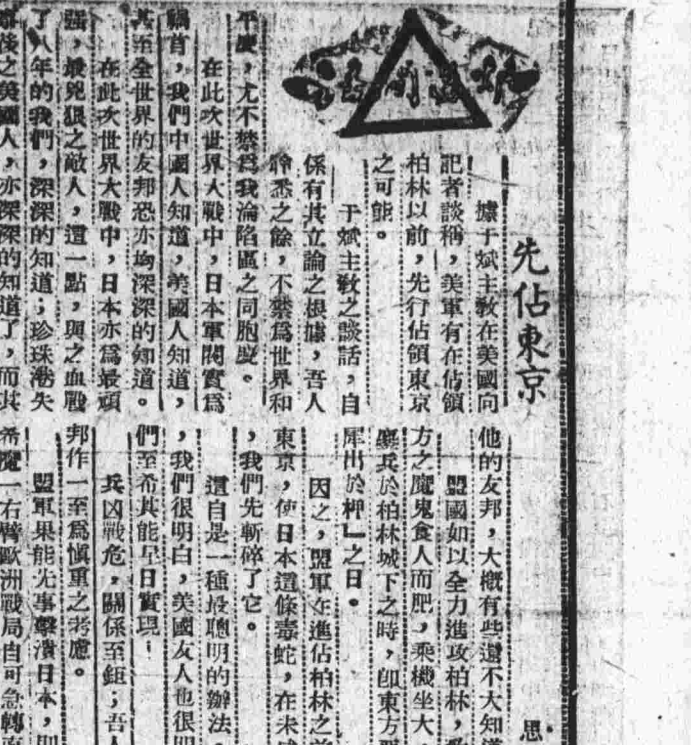 先佔東京
思
據于斌主敎在美國向
記者談稱，美軍有在佔領
柏林以前，先行佔領東京
之可能。
于斌主敎之談話，自
係有其立論之根據，吾人
聆悉之餘，不禁爲世界和
平慶，尤不禁爲我淪陷區之同胞慶。
在此次世界大戰中，日本軍閥實爲
禍首，我們中國人知道，美國人知道，
甚至全世界的友邦恐亦均深深的知道。
在此次世界大戰中，日本亦爲最頑
强，最兇狠之敵人，這一點，與之血戰
了八年的我們，深深的知道；珍珠港失
後之美國人，亦深深的知道了，而其
他的友邦，大槪有些還不大知道
盟國如以全力進攻柏林，
方之魔鬼食人而肥，乘機坐大，
兵於柏林城下之時，卽東方
犀出於柙』之日。
因之，盟軍在進佔柏林之前
東京，使日本這條毒蛇，在未
，我們先斬碎了它。
這自是一種最聰明的辦法，
，我們很明白，美國友人也很明
們至希其能早日實現！
兵凶戰危，關係至鉅；吾人
邦作一至爲愼重之考慮。
盟軍果能先事擊潰日本，則
希魔一右臂歐洲戰局自可急轉